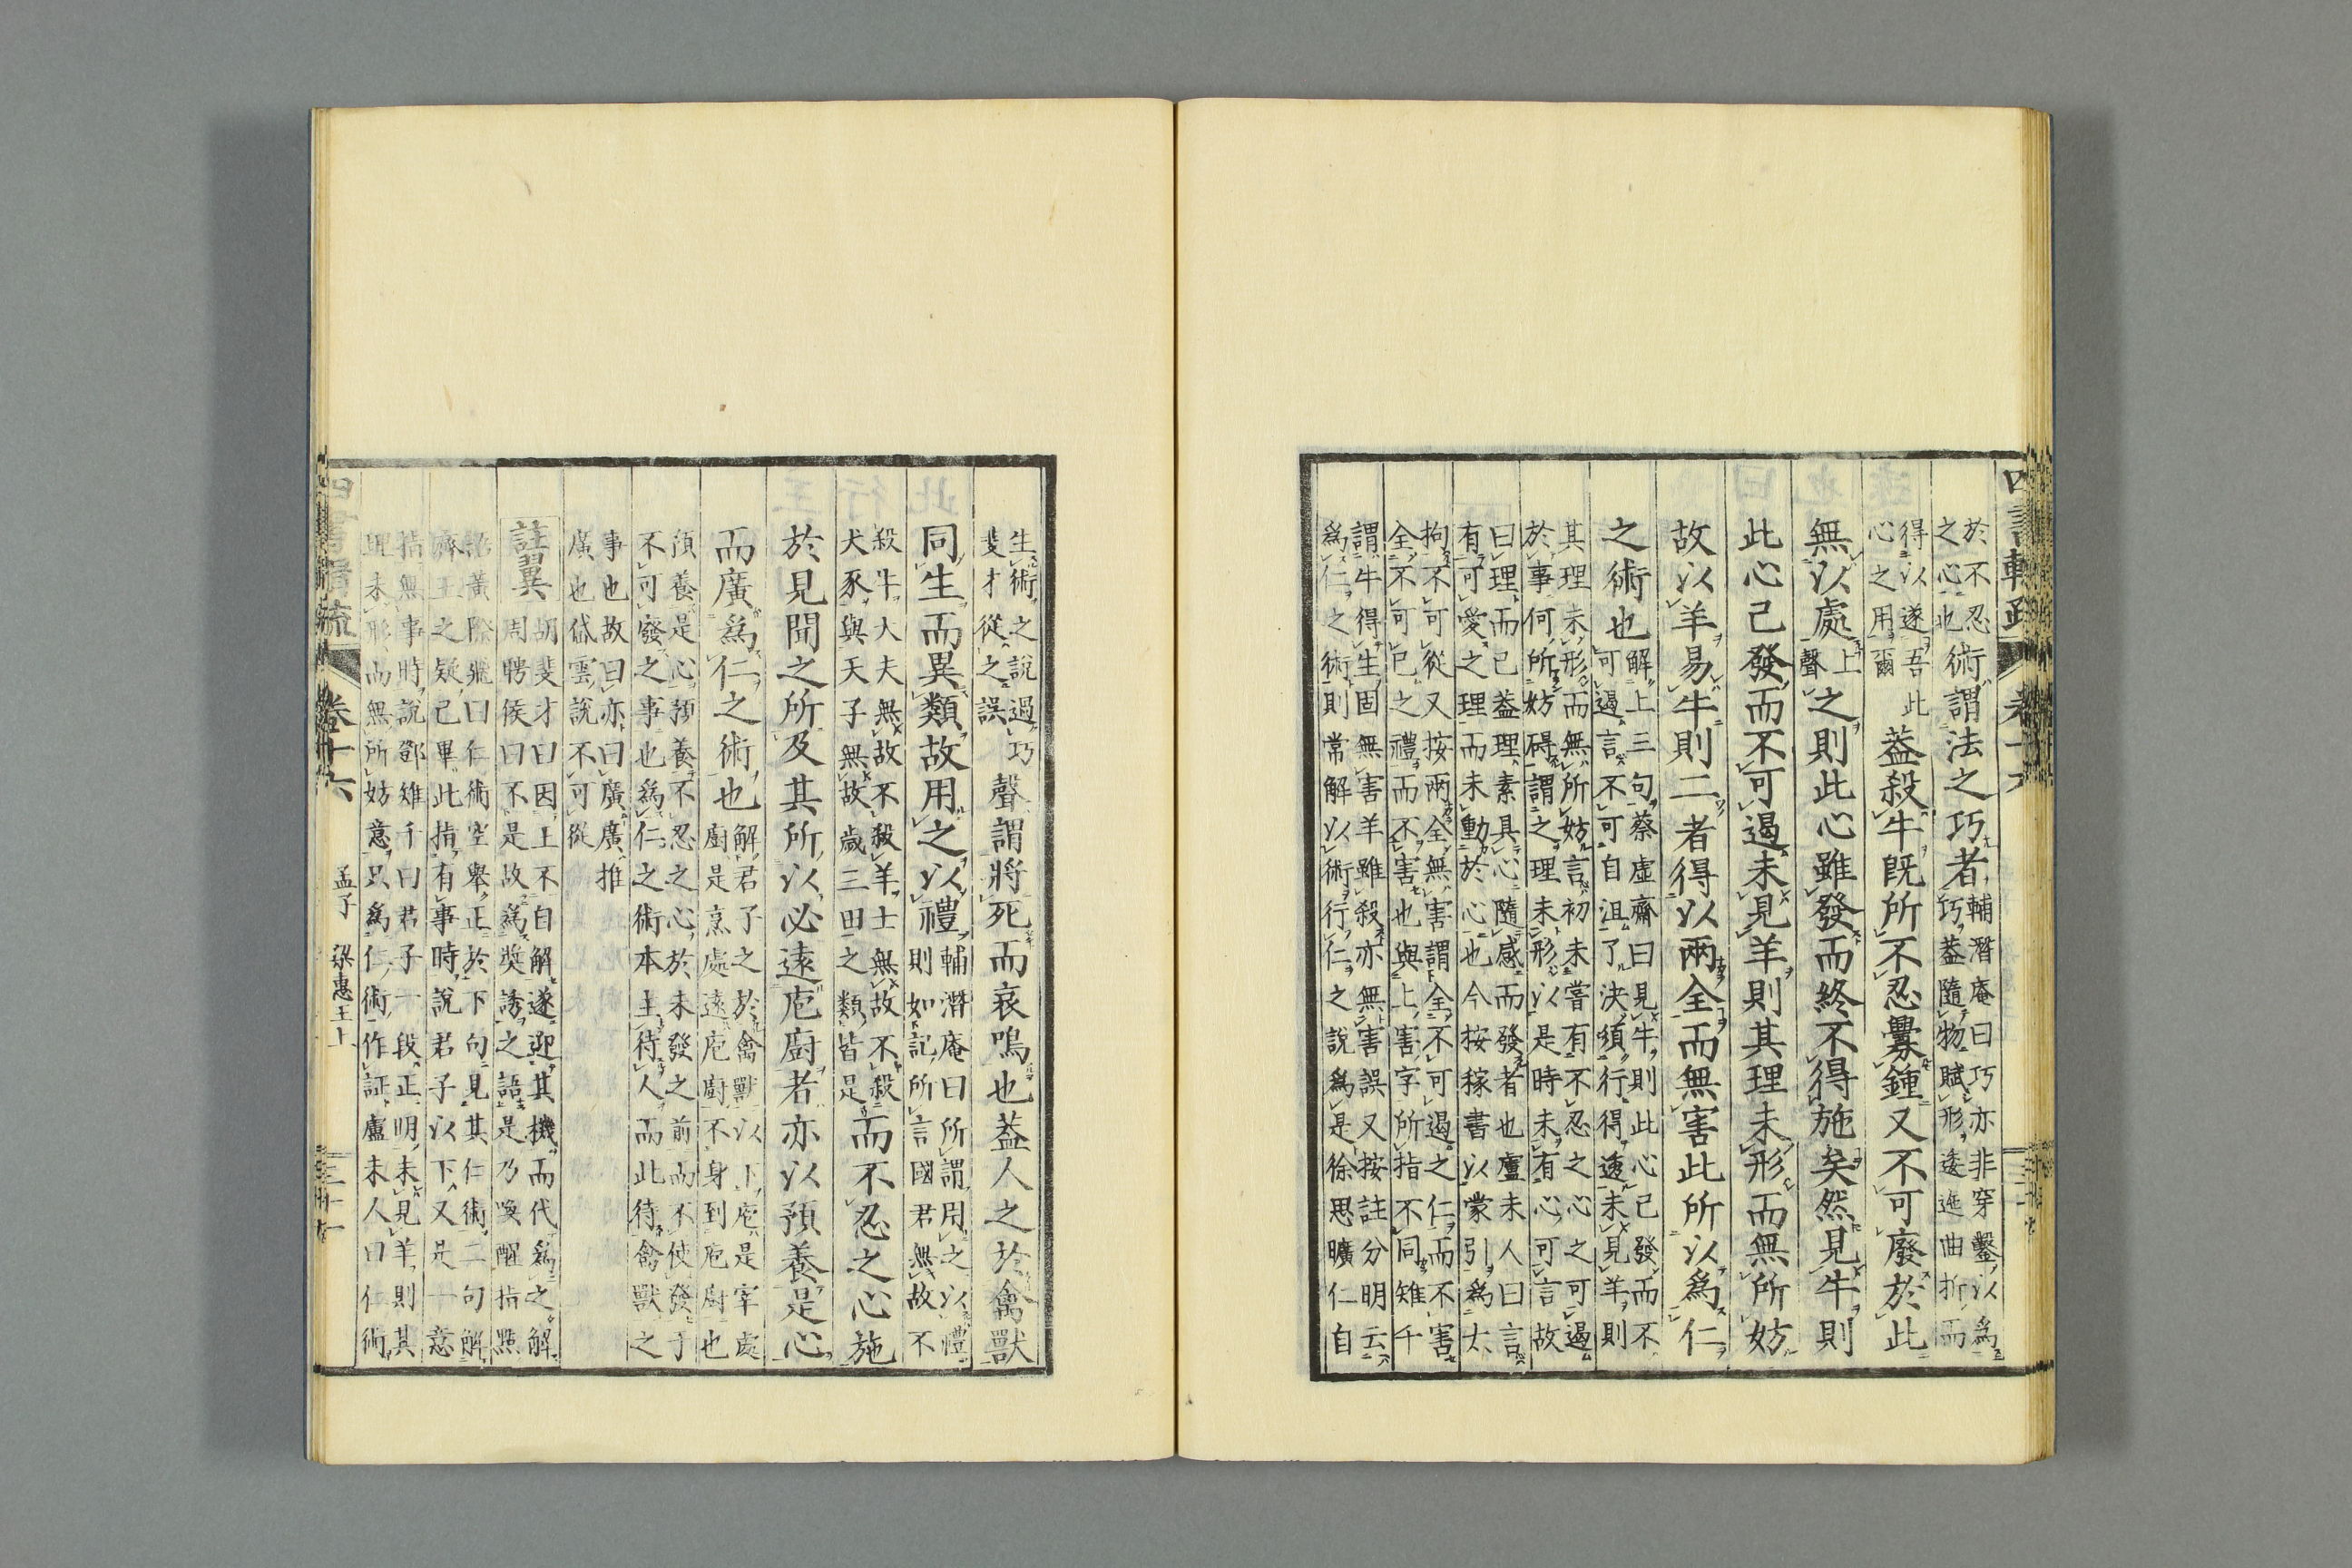 於不忍
之心也
術謂法之巧者
輔潛庵曰巧亦非穿鑿以為
巧蓋隨物賦形逶迤曲折而
得以遂吾此
心之用爾
蓋殺牛旣所不忍釁鍾又不可廢於此
無以處上聲之則此心雖發而終不得施矣然見牛則
此心已發而不可遏未見羊則其理未形而無所妨
故以羊易牛則二者得以兩全而無害此所以爲仁
之術也
解上三句蔡虛齋曰見牛則此心已發而不
可遏言不可自沮了決須行得透未見羊則
其理未形而無所妨言初未嘗有不忍之心之可遏
於事何所妨碍謂之理未形以是時未有心可言故
曰理而已蓋理素具心隨感而發者也盧未人曰言
有可愛之理而未動於心也今按稼書以蒙引爲太
拘不可從又按兩全無害謂全不可遏之仁而不害
全不可已之禮而不害也與上害字所指不同雉千
謂牛得生固無害羊雖殺亦無害誤又按註分明云
爲仁之術則常解以術行仁之說爲是徐思曠仁自
生術之說過巧
斐才從之誤
聲謂將死而哀鳴也蓋人之於禽獸
同生而異類故用之以禮
輔潛庵曰所謂用之以禮
則如記所言國君無故不
殺牛大夫無故不殺羊士無故不殺
犬豕與天子無故歲三田之類皆是
而不忍之心施
於見聞之所及其所以必遠庖廚者亦以預養是心
而廣爲仁之術也
解君子之於禽獸以下庖是宰處
廚是烹處遠庖廚不身到庖廚也
預養是心預養不忍之心於未發之前而不使發于
不可發之事也爲仁之術本主待人而此待禽獸之
事也故曰亦曰廣廣推
廣也岱雲說不可從
註翼
胡斐才曰因上不自解遂迎其機而代爲之解
周聘侯曰不是故爲奬誘之語是乃喚醒指點
黃際飛曰仁術空舉正於下句見其仁術二句解
齊王之疑已畢此指有事時說君子以下又是一意
指無事時說鄧雉千曰君子一段正明未見羊則其
理未形而無所妨意只爲仁術作証盧未人曰仁術
卷十六
孟子
梁惠王上